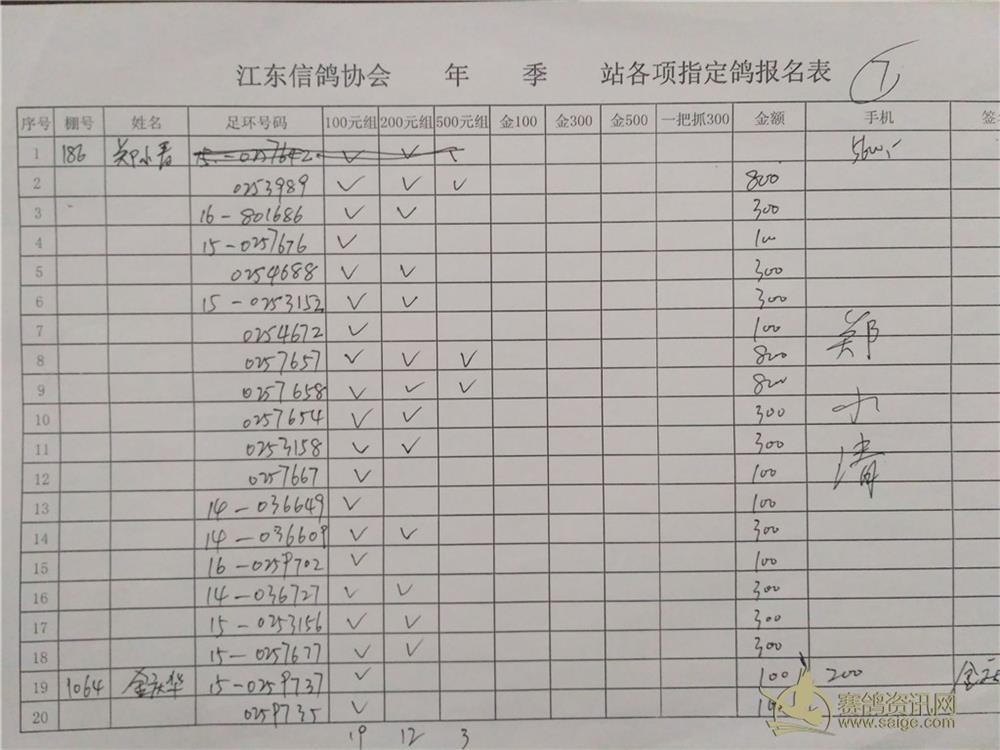 江东信鸽协会 年 季 站各项指定鸽报名表 7
序号 棚号 姓名 足环号码 100元组 200元组 500元组 金100 金300 金500 一把抓300 金额 手机 签
1 186 15-0257642 ✓ ✓ ✓ 5600,-
2 0253989 ✓ ✓ ✓ 800
3 16-801686 ✓ ✓ 300
4 15-0257676 ✓ 100
5 0254688 ✓ ✓ 300
6 15-0253152 ✓ ✓ 300
7 0254672 ✓ 100
8 0257657 ✓ ✓ ✓ 800
9 0257658 ✓ ✓ ✓ 800
10 0257654 ✓ ✓ 300
11 0253158 ✓ ✓ 300
12 0257667 ✓ 100
13 14-036649 ✓ 100
14 14-036609 ✓ ✓ 300
15 16-0259702 ✓ 100
16 14-036727 ✓ ✓ 300
17 15-0253156 ✓ ✓ 300
18 15-0257677 ✓ ✓ 300
19 1064 金庆华 15-0259737 ✓ 100 200
20 0259735 ✓ 100
19 12 3
郑小清
赛鸽资讯网
www.saige.com